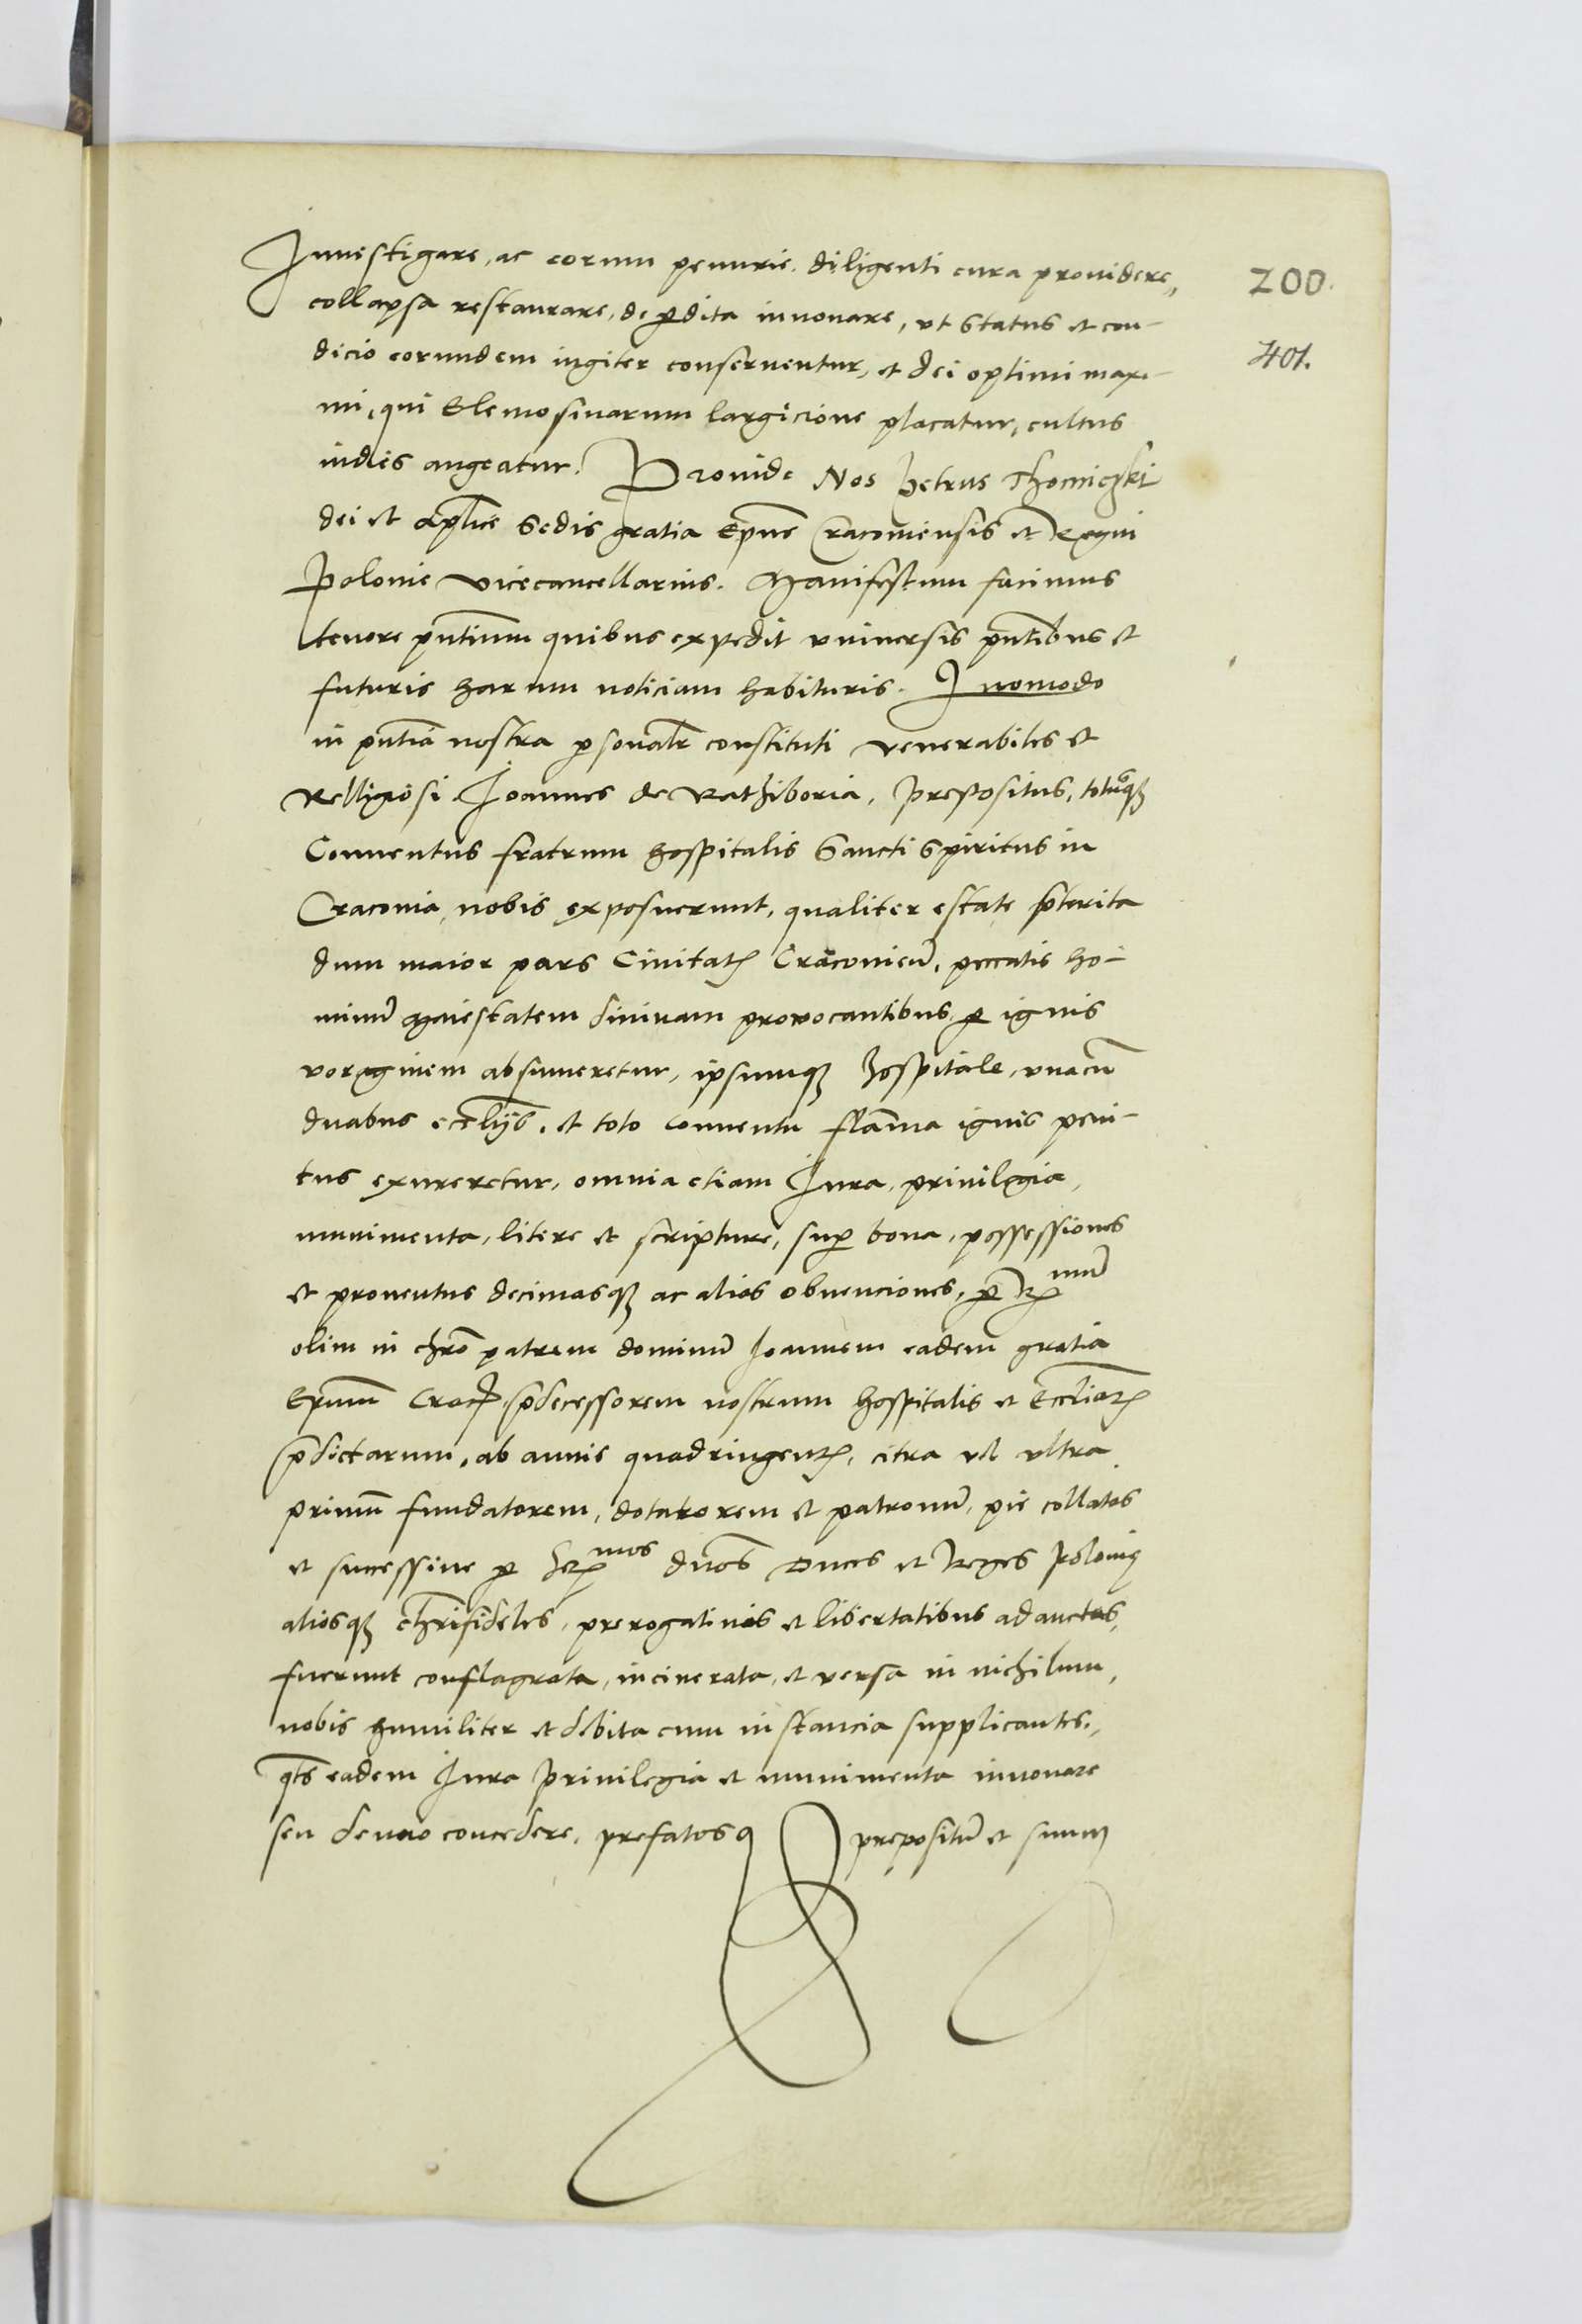 Inuestigare, ac eorum penurie, diligenti cura prouidere,
200.
collapsa restaurare, deꝑdita innouare, vt status et con-
dicio eorundem iugiter conseruentur, et dei optimi maxi-
401.
mi, qui Elemosinarum largicione placatur, cultus
indies augeatur. Proinde Nos Petrus Thomiczki
dei et aplice Sedis gratia Epus Cracouiensis et Regni
Polonie Vicecancellarius. Manifestum facimus
tenore pntium quibus expedit vniuersis pntibus et
futuris harum noticiam habituris. Quomodo
in pntia nostra ꝑsonalr constituti venerabiles et
Relligiosi Ioannes de Rathiboria, prepositus, totusqꝫ
Conuentus fratrum hospitalis Sancti Spiritus in
Cracouia, nobis exposuerunt, qualiter estate pterita
dum maior pars Ciuitatꝭ Cracouien, peccatis ho-
minu Maiestatem diuinam prouocantibus, ꝑ ignis
voraginem absumeretur, ipsumqꝫ hospitale, vnacu
duabus eccliis, et toto conuentu flama ignis peni-
tus exureretur, omnia etiam Iura, priuilegia,
munimenta, litere et scripture, suꝑ bona, possessiones
et prouentus decimasqꝫ ac alias obuenciones, ꝑ R mu
olim in chro patrem dominu Ioannem eadem gratia
Epum Crac, pdecessorem nostrum hospitalis et Eccliarꝭ
pdictarum, ab annis quadringentꝭ, citra vel vltra
primu fundatorem, dotatorem et patronu, pie collatas
et successiue ꝑ Ser mos dnos Duces et Reges Polonię
aliosqꝫ christifideles, prerogatiuis et libertatibus adauctas,
fuerunt conflagrata, incinerata, et versa in nichilum,
nobis humiliter et debita cum instancia supplicantes,
qts eadem Iura Priuilegia et munimenta innouare
seu denuo concedere, prefatosq prepositu et suum